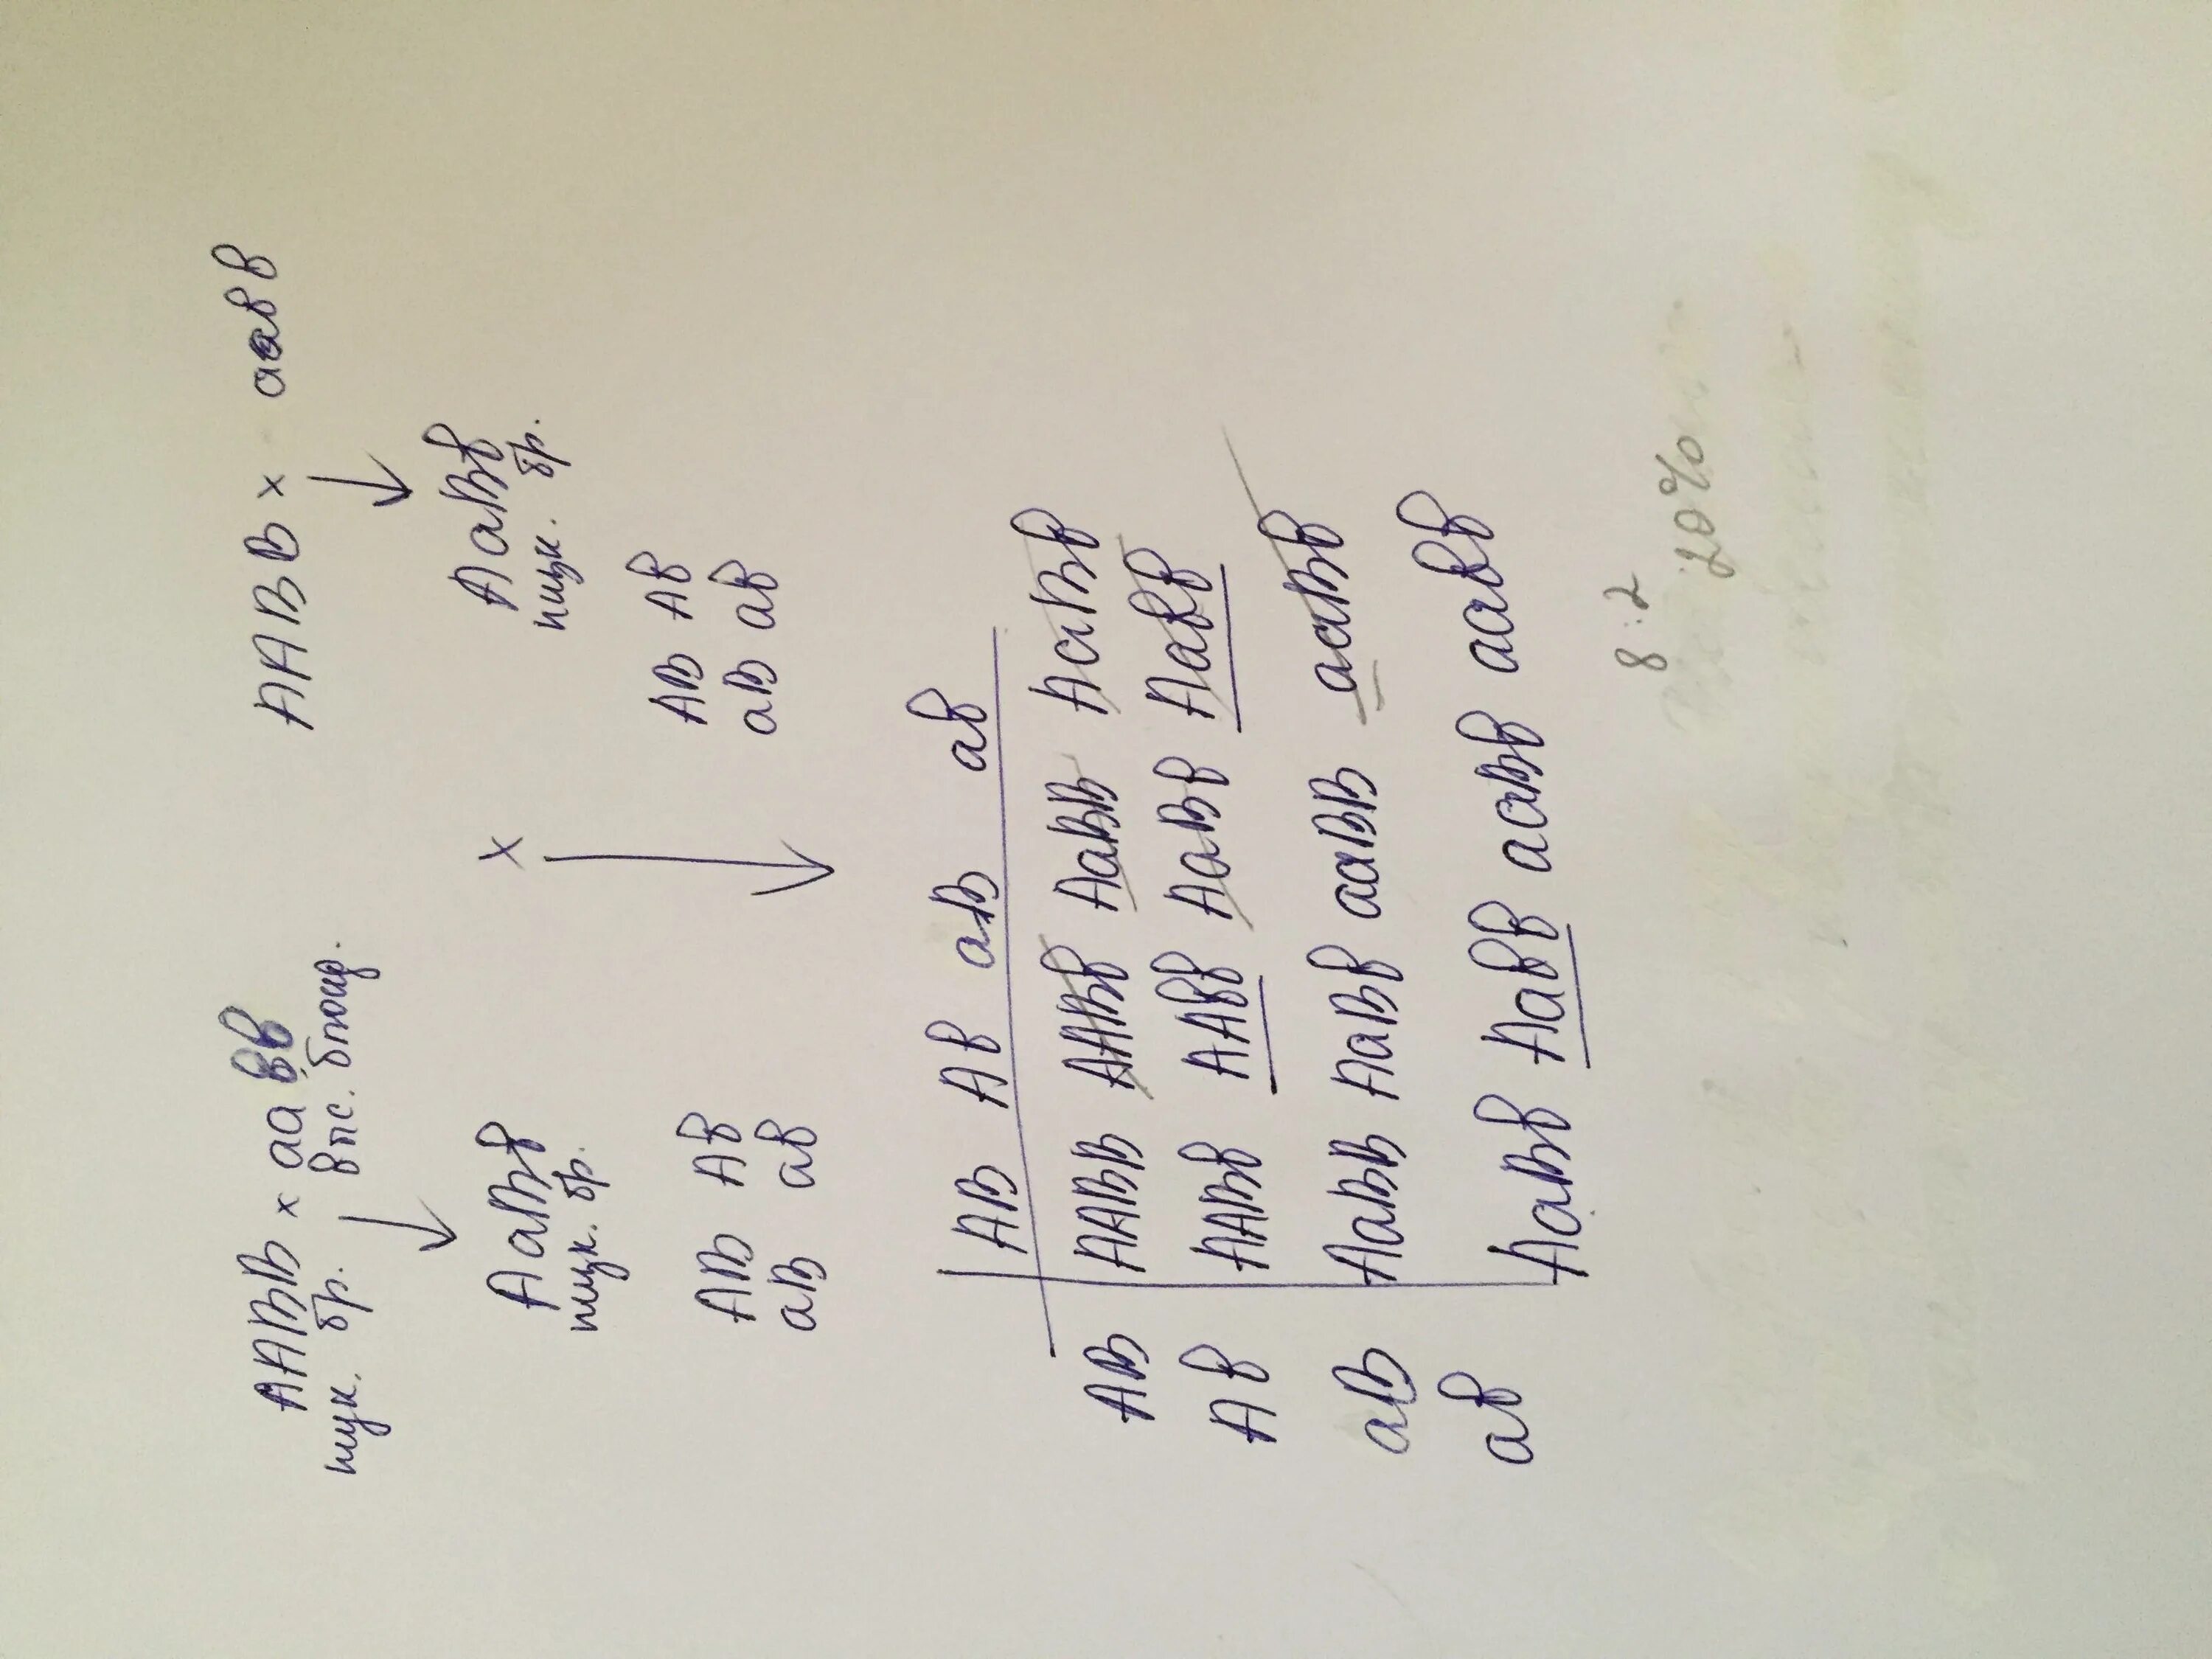 ААВВ × аа вв ААВВ × аавв
бр. впс.
АаВв × АаВв
бр. бр.
АВ Ав АВ Ав
аВ ав аВ ав
АВ Ав аВ ав
АВ ААВВ ААВв АаВВ АаВв
Ав ААВв ААвв АаВв Аавв
аВ АаВВ АаВв ааВВ ааВв
ав АаВв Аавв ааВв аавв
8:2
20%